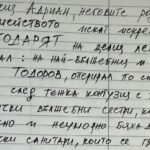 Адриан, неговите ро
семейството искат искре
ГОДАРЯТ
на целия ле
ал: на най-вълшебния
ТОДОРОВ, опериран то с
след тежка контузия с
ски вълшебни сестри, ка
но и неуморно бяха д
ски санитари, които се гр